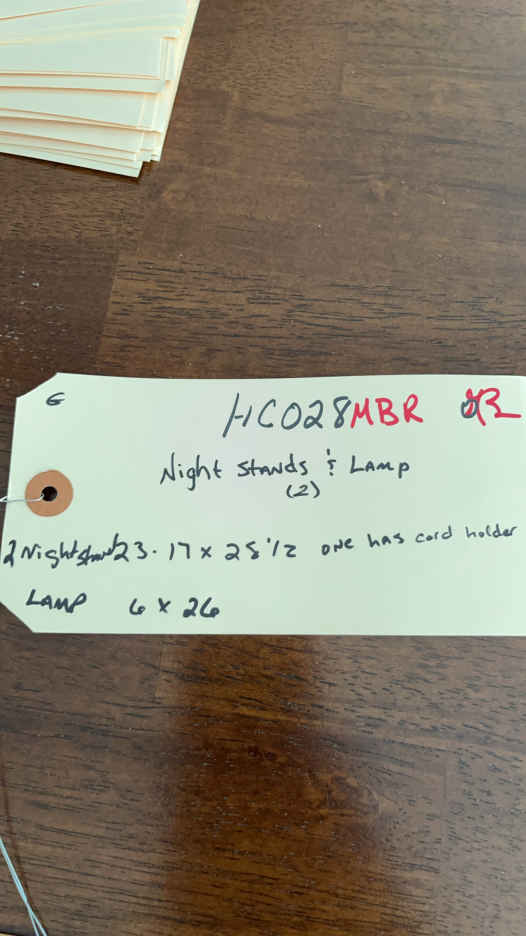 E
HC028 MBR
Night Stands & Lamp
(2)
2 Nightstand 23. 17 x 25 1/2 one has cord holder
LAMP 6 x 26